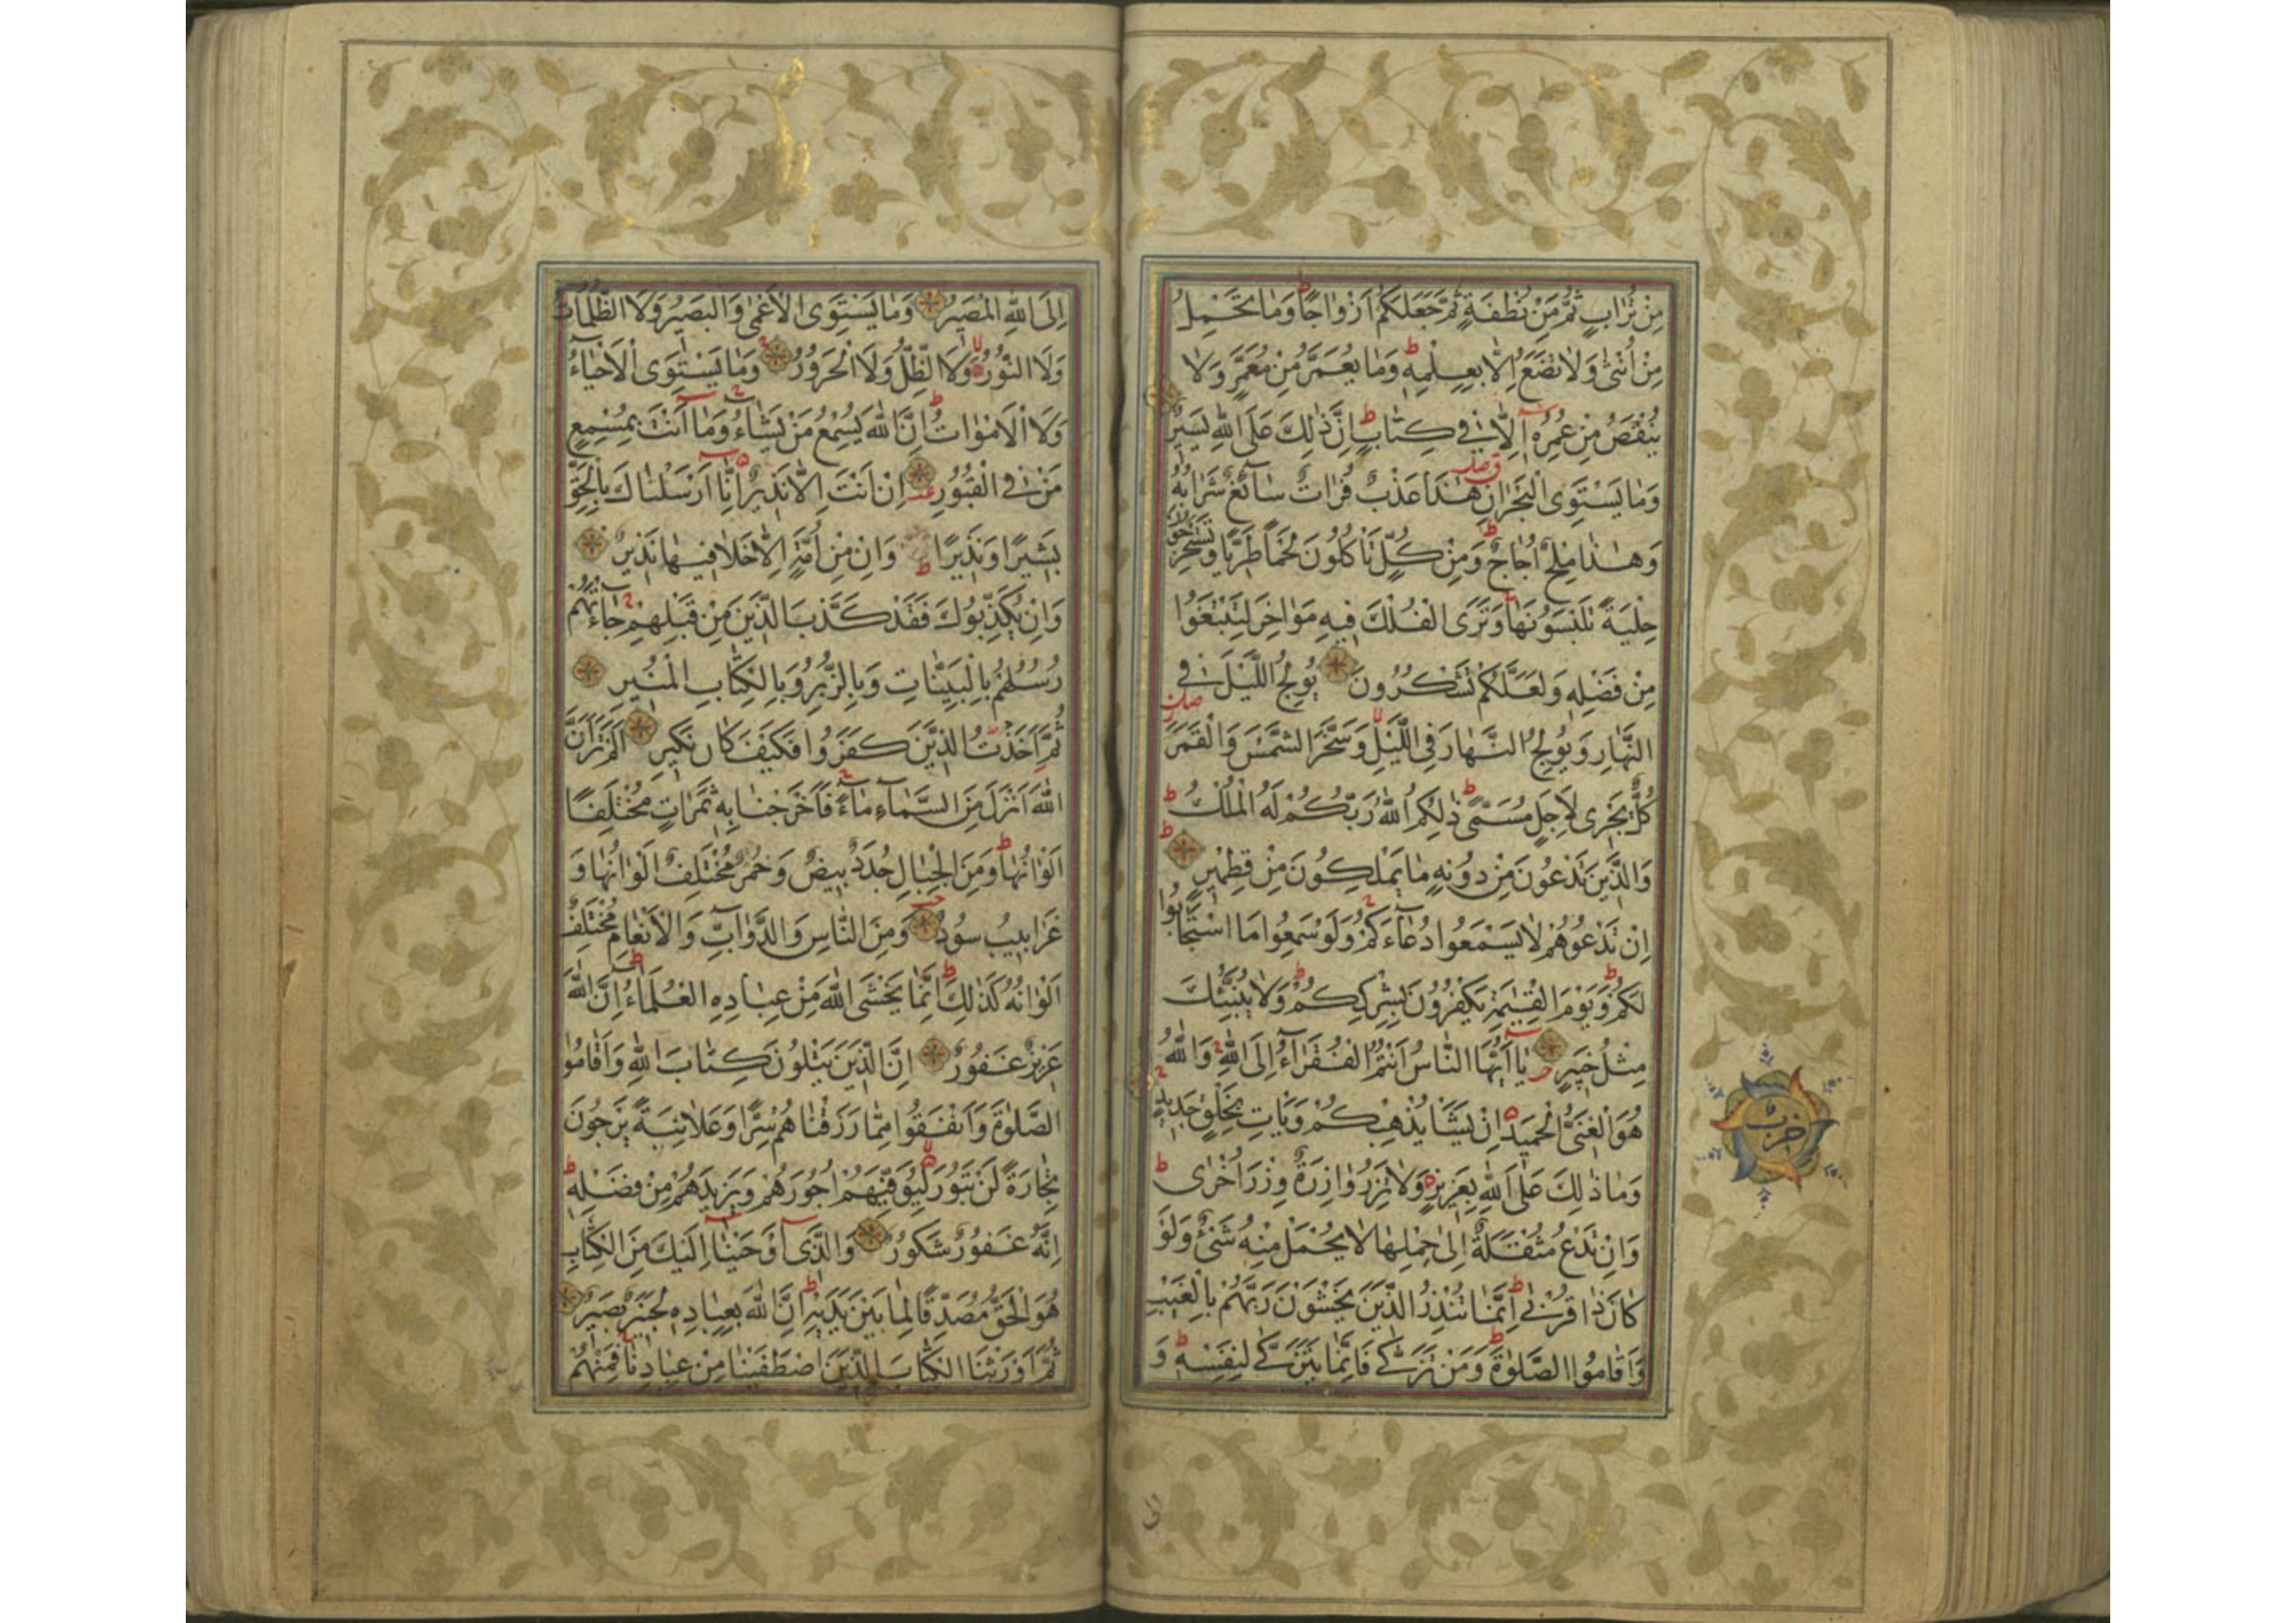 مِنْ تُرَابٍ ثُمَّ مِنْ نُطْفَةٍ ثُمَّ جَعَلَكُمْ اَزْوَاجًا وَمَا تَحْمِلُ
مِنْ اُنْثٰى وَلَا تَضَعُ اِلَّا بِعِلْمِهٖ وَمَا يُعَمَّرُ مِنْ مُعَمَّرٍ وَلَا
يُنْقَصُ مِنْ عُمُرِهٖٓ اِلَّا فِي كِتَابٍ اِنَّ ذٰلِكَ عَلَى اللّٰهِ يَسِيرٌ
وَمَا يَسْتَوِى الْبَحْرَانِ هٰذَا عَذْبٌ فُرَاتٌ سَآئِغٌ شَرَابُهُ
وَهٰذَا مِلْحٌ اُجَاجٌ وَمِنْ كُلٍّ تَأْكُلُونَ لَحْمًا طَرِيًّا وَتَسْتَخْرِجُونَ
حِلْيَةً تَلْبَسُونَهَا وَتَرَى الْفُلْكَ فِيهِ مَوَاخِرَ لِتَبْتَغُوا
مِنْ فَضْلِهٖ وَلَعَلَّكُمْ تَشْكُرُونَ يُولِجُ اللَّيْلَ فِي
النَّهَارِ وَيُولِجُ النَّهَارَ فِي اللَّيْلِ وَسَخَّرَ الشَّمْسَ وَالْقَمَرَ
كُلٌّ يَجْرِى لِاَجَلٍ مُسَمًّى ذٰلِكُمُ اللّٰهُ رَبُّكُمْ لَهُ الْمُلْكُ
وَالَّذِينَ تَدْعُونَ مِنْ دُونِهٖ مَا يَمْلِكُونَ مِنْ قِطْمِيرٍ
اِنْ تَدْعُوهُمْ لَا يَسْمَعُوا دُعَآءَكُمْ وَلَوْ سَمِعُوا مَا اسْتَجَابُوا
لَكُمْ وَيَوْمَ الْقِيٰمَةِ يَكْفُرُونَ بِشِرْكِكُمْ وَلَا يُنَبِّئُكَ
مِثْلُ خَبِيرٍ يَآ اَيُّهَا النَّاسُ اَنْتُمُ الْفُقَرَآءُ اِلَى اللّٰهِ وَاللّٰهُ
هُوَ الْغَنِيُّ الْحَمِيدُ اِنْ يَشَأْ يُذْهِبْكُمْ وَيَأْتِ بِخَلْقٍ جَدِيدٍ
وَمَا ذٰلِكَ عَلَى اللّٰهِ بِعَزِيزٍ وَلَا تَزِرُ وَازِرَةٌ وِزْرَ اُخْرٰى
وَاِنْ تَدْعُ مُثْقَلَةٌ اِلٰى حِمْلِهَا لَا يُحْمَلْ مِنْهُ شَيْءٌ وَلَوْ
كَانَ ذَا قُرْبٰى اِنَّمَا تُنْذِرُ الَّذِينَ يَخْشَوْنَ رَبَّهُمْ بِالْغَيْبِ
وَاَقَامُوا الصَّلٰوةَ وَمَنْ تَزَكّٰى فَاِنَّمَا يَتَزَكّٰى لِنَفْسِهٖ وَ
حزب
اِلَى اللّٰهِ الْمَصِيرُ وَمَا يَسْتَوِى الْاَعْمٰى وَالْبَصِيرُ وَلَا الظُّلُمَاتُ
وَلَا النُّورُ وَلَا الظِّلُّ وَلَا الْحَرُورُ وَمَا يَسْتَوِى الْاَحْيَآءُ
وَلَا الْاَمْوَاتُ اِنَّ اللّٰهَ يُسْمِعُ مَنْ يَشَآءُ وَمَآ اَنْتَ بِمُسْمِعٍ
مَنْ فِي الْقُبُورِ اِنْ اَنْتَ اِلَّا نَذِيرٌ اِنَّآ اَرْسَلْنَاكَ بِالْحَقِّ
بَشِيرًا وَنَذِيرًا وَاِنْ مِنْ اُمَّةٍ اِلَّا خَلَا فِيهَا نَذِيرٌ
وَاِنْ يُكَذِّبُوكَ فَقَدْ كَذَّبَ الَّذِينَ مِنْ قَبْلِهِمْ جَآءَتْهُمْ
رُسُلُهُمْ بِالْبَيِّنَاتِ وَبِالزُّبُرِ وَبِالْكِتَابِ الْمُنِيرِ
ثُمَّ اَخَذْتُ الَّذِينَ كَفَرُوا فَكَيْفَ كَانَ نَكِيرِ اَلَمْ تَرَ اَنَّ
اللّٰهَ اَنْزَلَ مِنَ السَّمَآءِ مَآءً فَاَخْرَجْنَا بِهٖ ثَمَرَاتٍ مُخْتَلِفًا
اَلْوَانُهَا وَمِنَ الْجِبَالِ جُدَدٌ بِيضٌ وَحُمْرٌ مُخْتَلِفٌ اَلْوَانُهَا وَ
غَرَابِيبُ سُودٌ وَمِنَ النَّاسِ وَالدَّوَآبِّ وَالْاَنْعَامِ مُخْتَلِفٌ
اَلْوَانُهُ كَذٰلِكَ اِنَّمَا يَخْشَى اللّٰهَ مِنْ عِبَادِهِ الْعُلَمَآءُ اِنَّ اللّٰهَ
عَزِيزٌ غَفُورٌ اِنَّ الَّذِينَ يَتْلُونَ كِتَابَ اللّٰهِ وَاَقَامُوا
الصَّلٰوةَ وَاَنْفَقُوا مِمَّا رَزَقْنَاهُمْ سِرًّا وَعَلَانِيَةً يَرْجُونَ
تِجَارَةً لَنْ تَبُورَ لِيُوَفِّيَهُمْ اُجُورَهُمْ وَيَزِيدَهُمْ مِنْ فَضْلِهٖ
اِنَّهُ غَفُورٌ شَكُورٌ وَالَّذِىٓ اَوْحَيْنَآ اِلَيْكَ مِنَ الْكِتَابِ
هُوَ الْحَقُّ مُصَدِّقًا لِمَا بَيْنَ يَدَيْهِ اِنَّ اللّٰهَ بِعِبَادِهٖ لَخَبِيرٌ بَصِيرٌ
ثُمَّ اَوْرَثْنَا الْكِتَابَ الَّذِينَ اصْطَفَيْنَا مِنْ عِبَادِنَا فَمِنْهُمْ